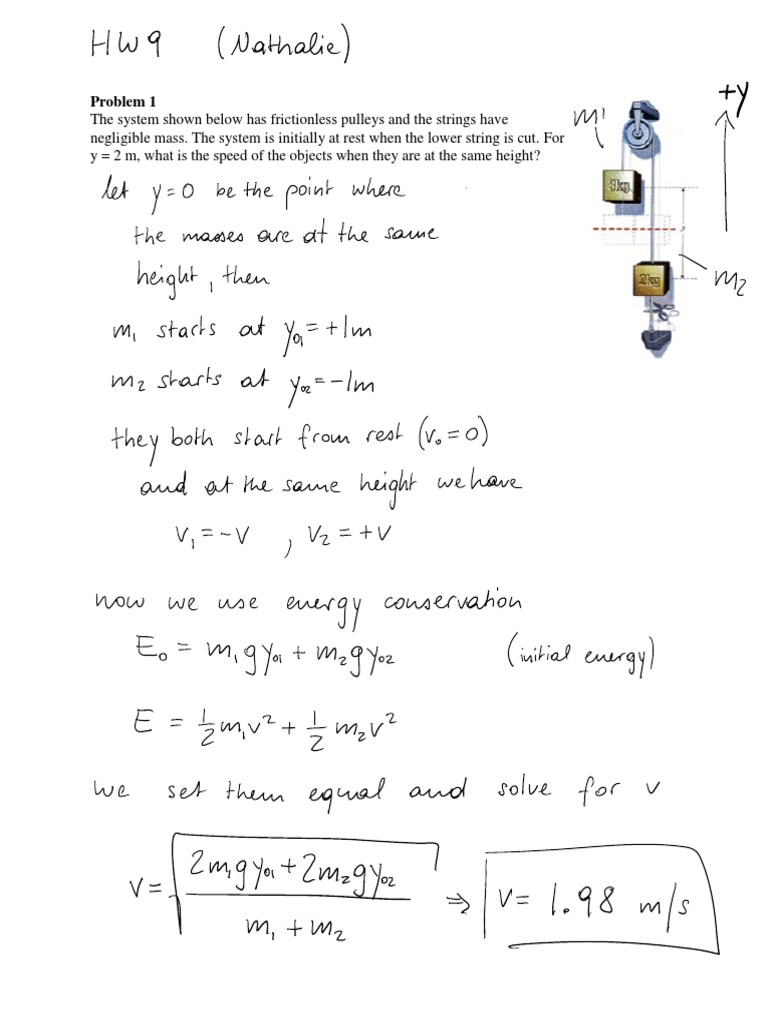 HW9 (Nathalie)
Problem 1
The system shown below has frictionless pulleys and the strings have
negligible mass. The system is initially at rest when the lower string is cut. For
y = 2 m, what is the speed of the objects when they are at the same height?
+y
m1
3kg
2kg
m2
let y=0 be the point where
the masses are at the same
height, then
m₁ starts at y₀₁=+1m
m₂ starts at y₀₂=-1m
they both start from rest (v₀=0)
and at the same height we have
v₁=-v , v₂=+v
now we use energy conservation
E₀ = m₁gy₀₁ + m₂gy₀₂ (initial energy)
E = 1/2 m₁v² + 1/2 m₂v²
we set them equal and solve for v
v = √((2m₁gy₀₁+2m₂gy₀₂)/(m₁+m₂)) ⇒ v= 1.98 m/s